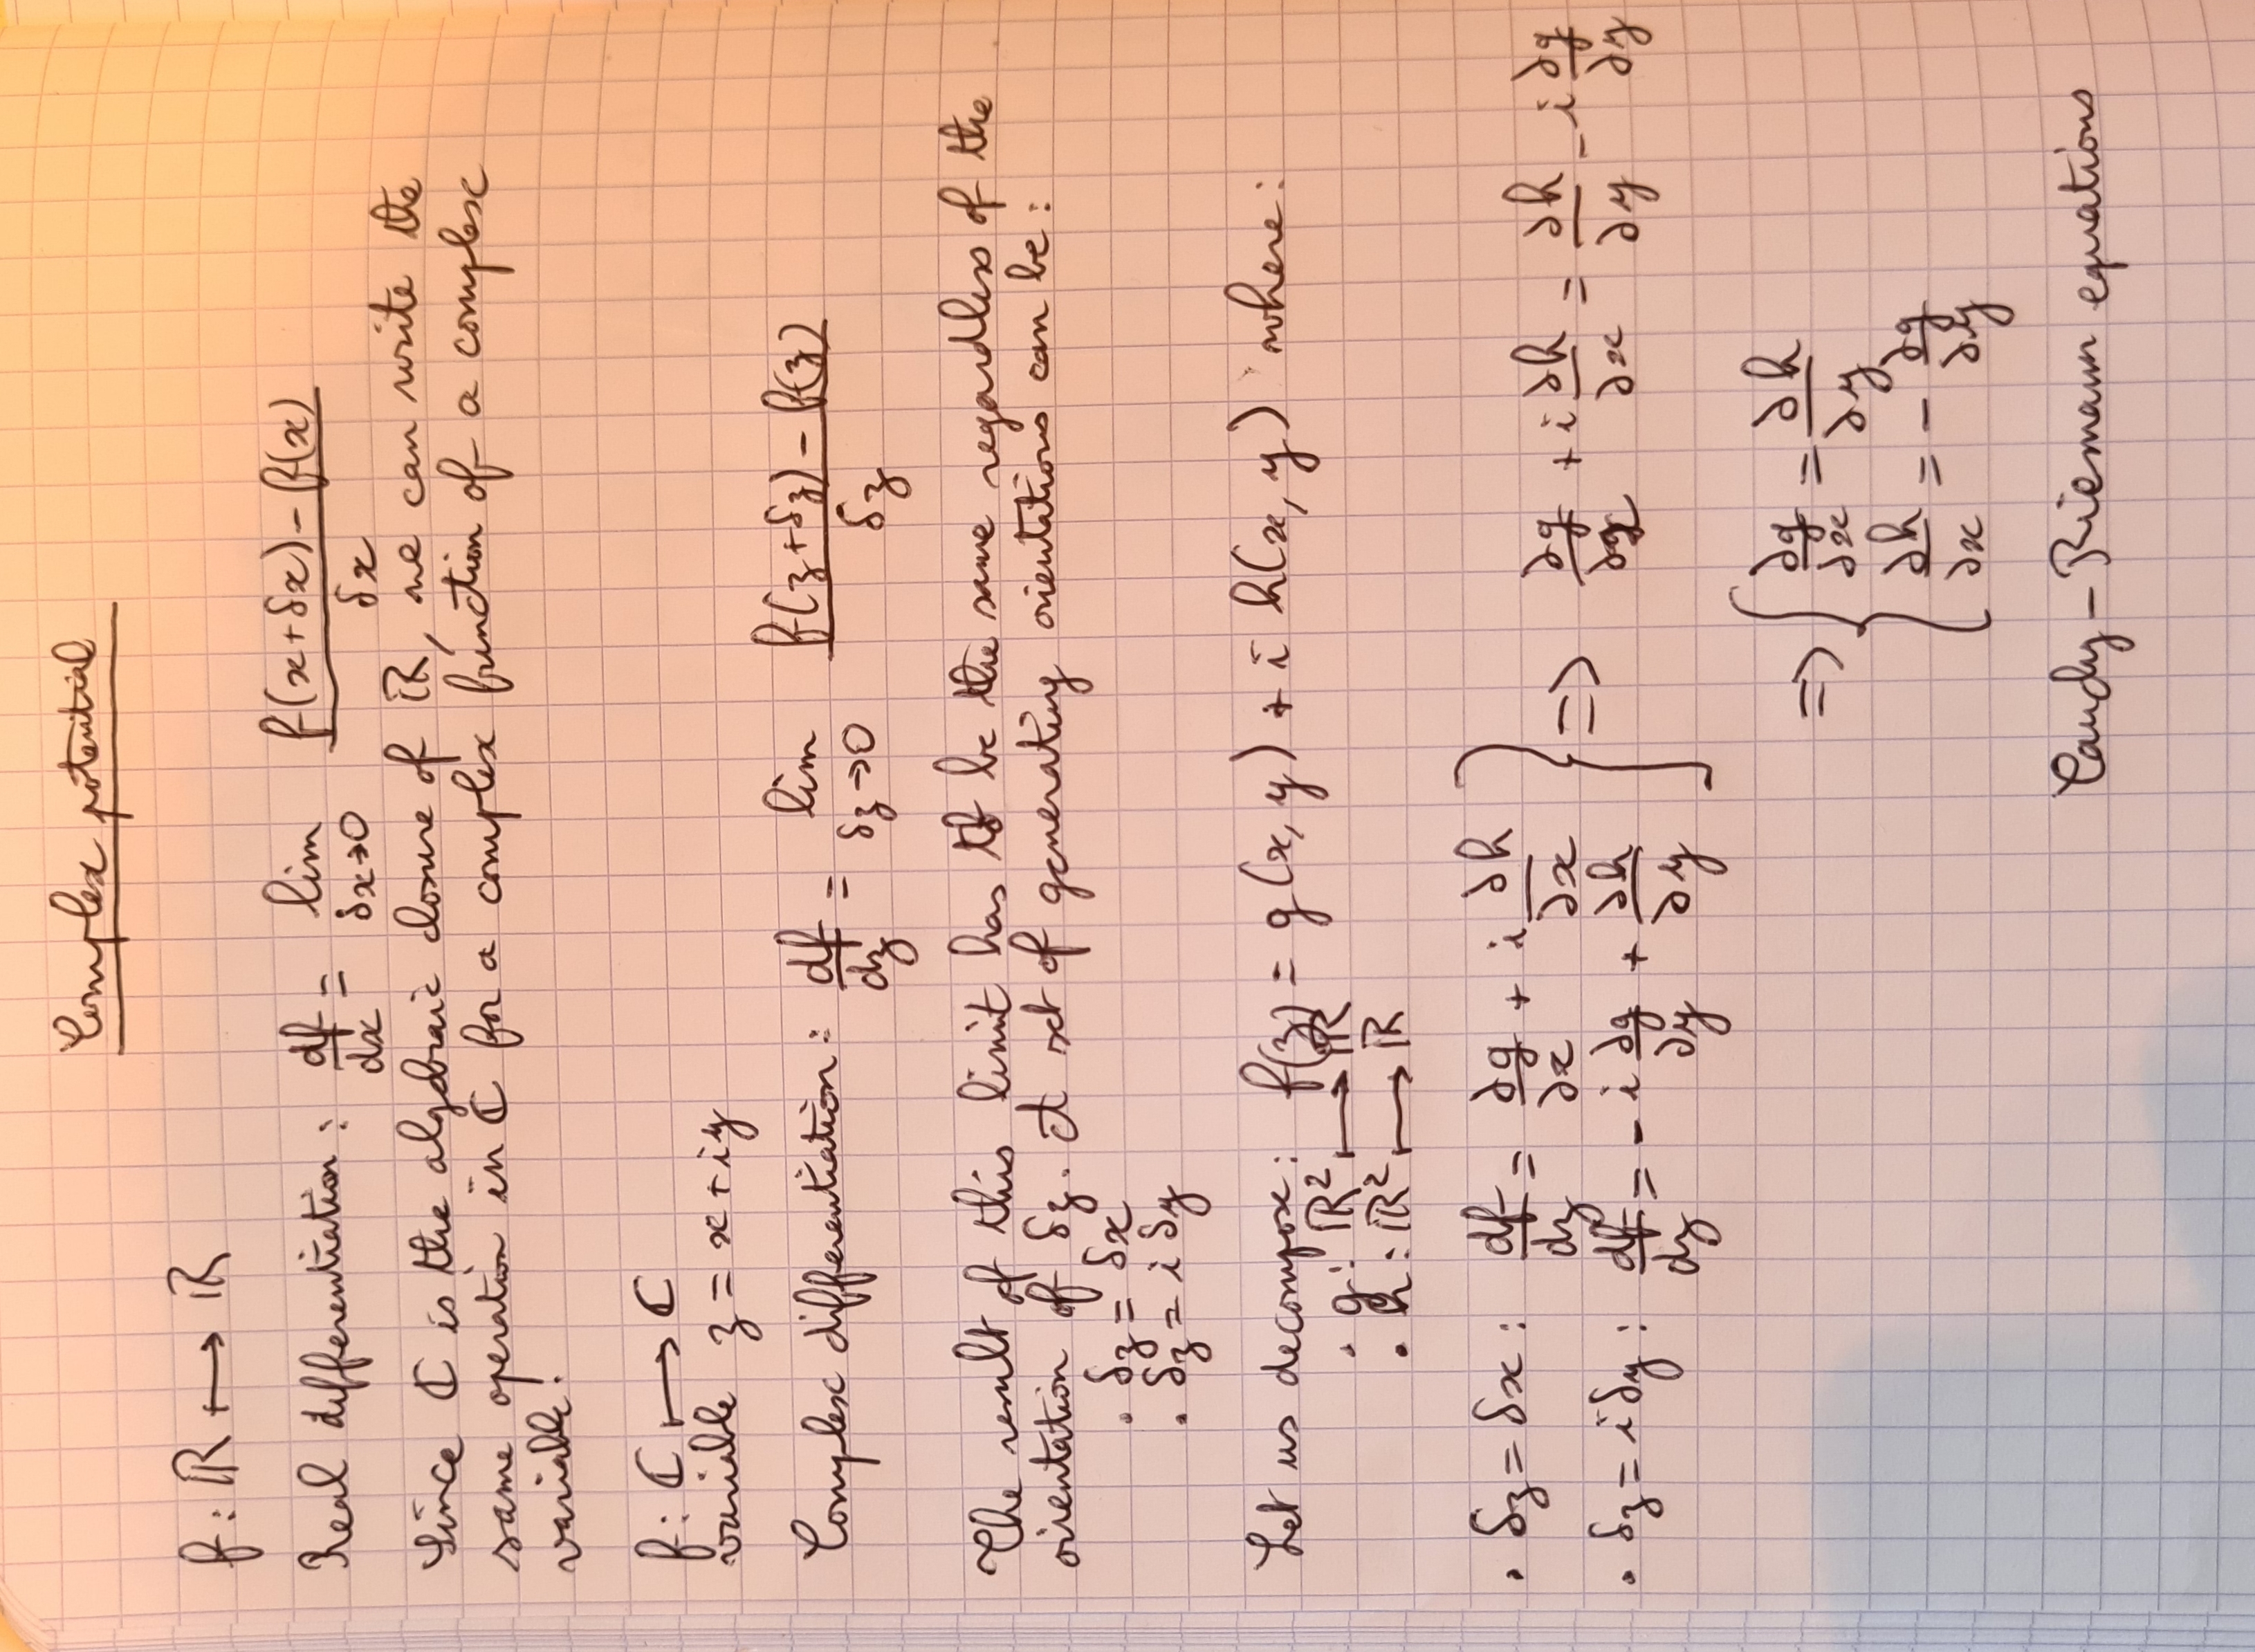 Complex potential
f : ℝ ⟼ ℝ
Real differentiation : df/dx = lim δx→0 (f(x+δx) - f(x))/δx
Since ℂ is the algebraic closure of ℝ, we can write the
same operation in ℂ for a complex function of a complex
variable.
f : ℂ ⟼ ℂ
variable z = x + iy
Complex differentiation : df/dz = lim δz→0 (f(z+δz) - f(z))/δz
The result of this limit has to be the same regardless of the
orientation of δz. A set of generating orientations can be :
• δz = δx
• δz = i δy
Let us decompose : f(z) = g(x, y) + i h(x, y) where :
• g : ℝ² ⟼ ℝ
• h : ℝ² ⟼ ℝ
• δz = δx : df/dz = ∂g/∂x + i ∂h/∂x
• δz = i δy : df/dz = - i ∂g/∂y + ∂h/∂y } => ∂g/∂x + i ∂h/∂x = ∂h/∂y - i ∂g/∂y
=> { ∂g/∂x = ∂h/∂y
∂h/∂x = - ∂g/∂y
Cauchy - Riemann equations